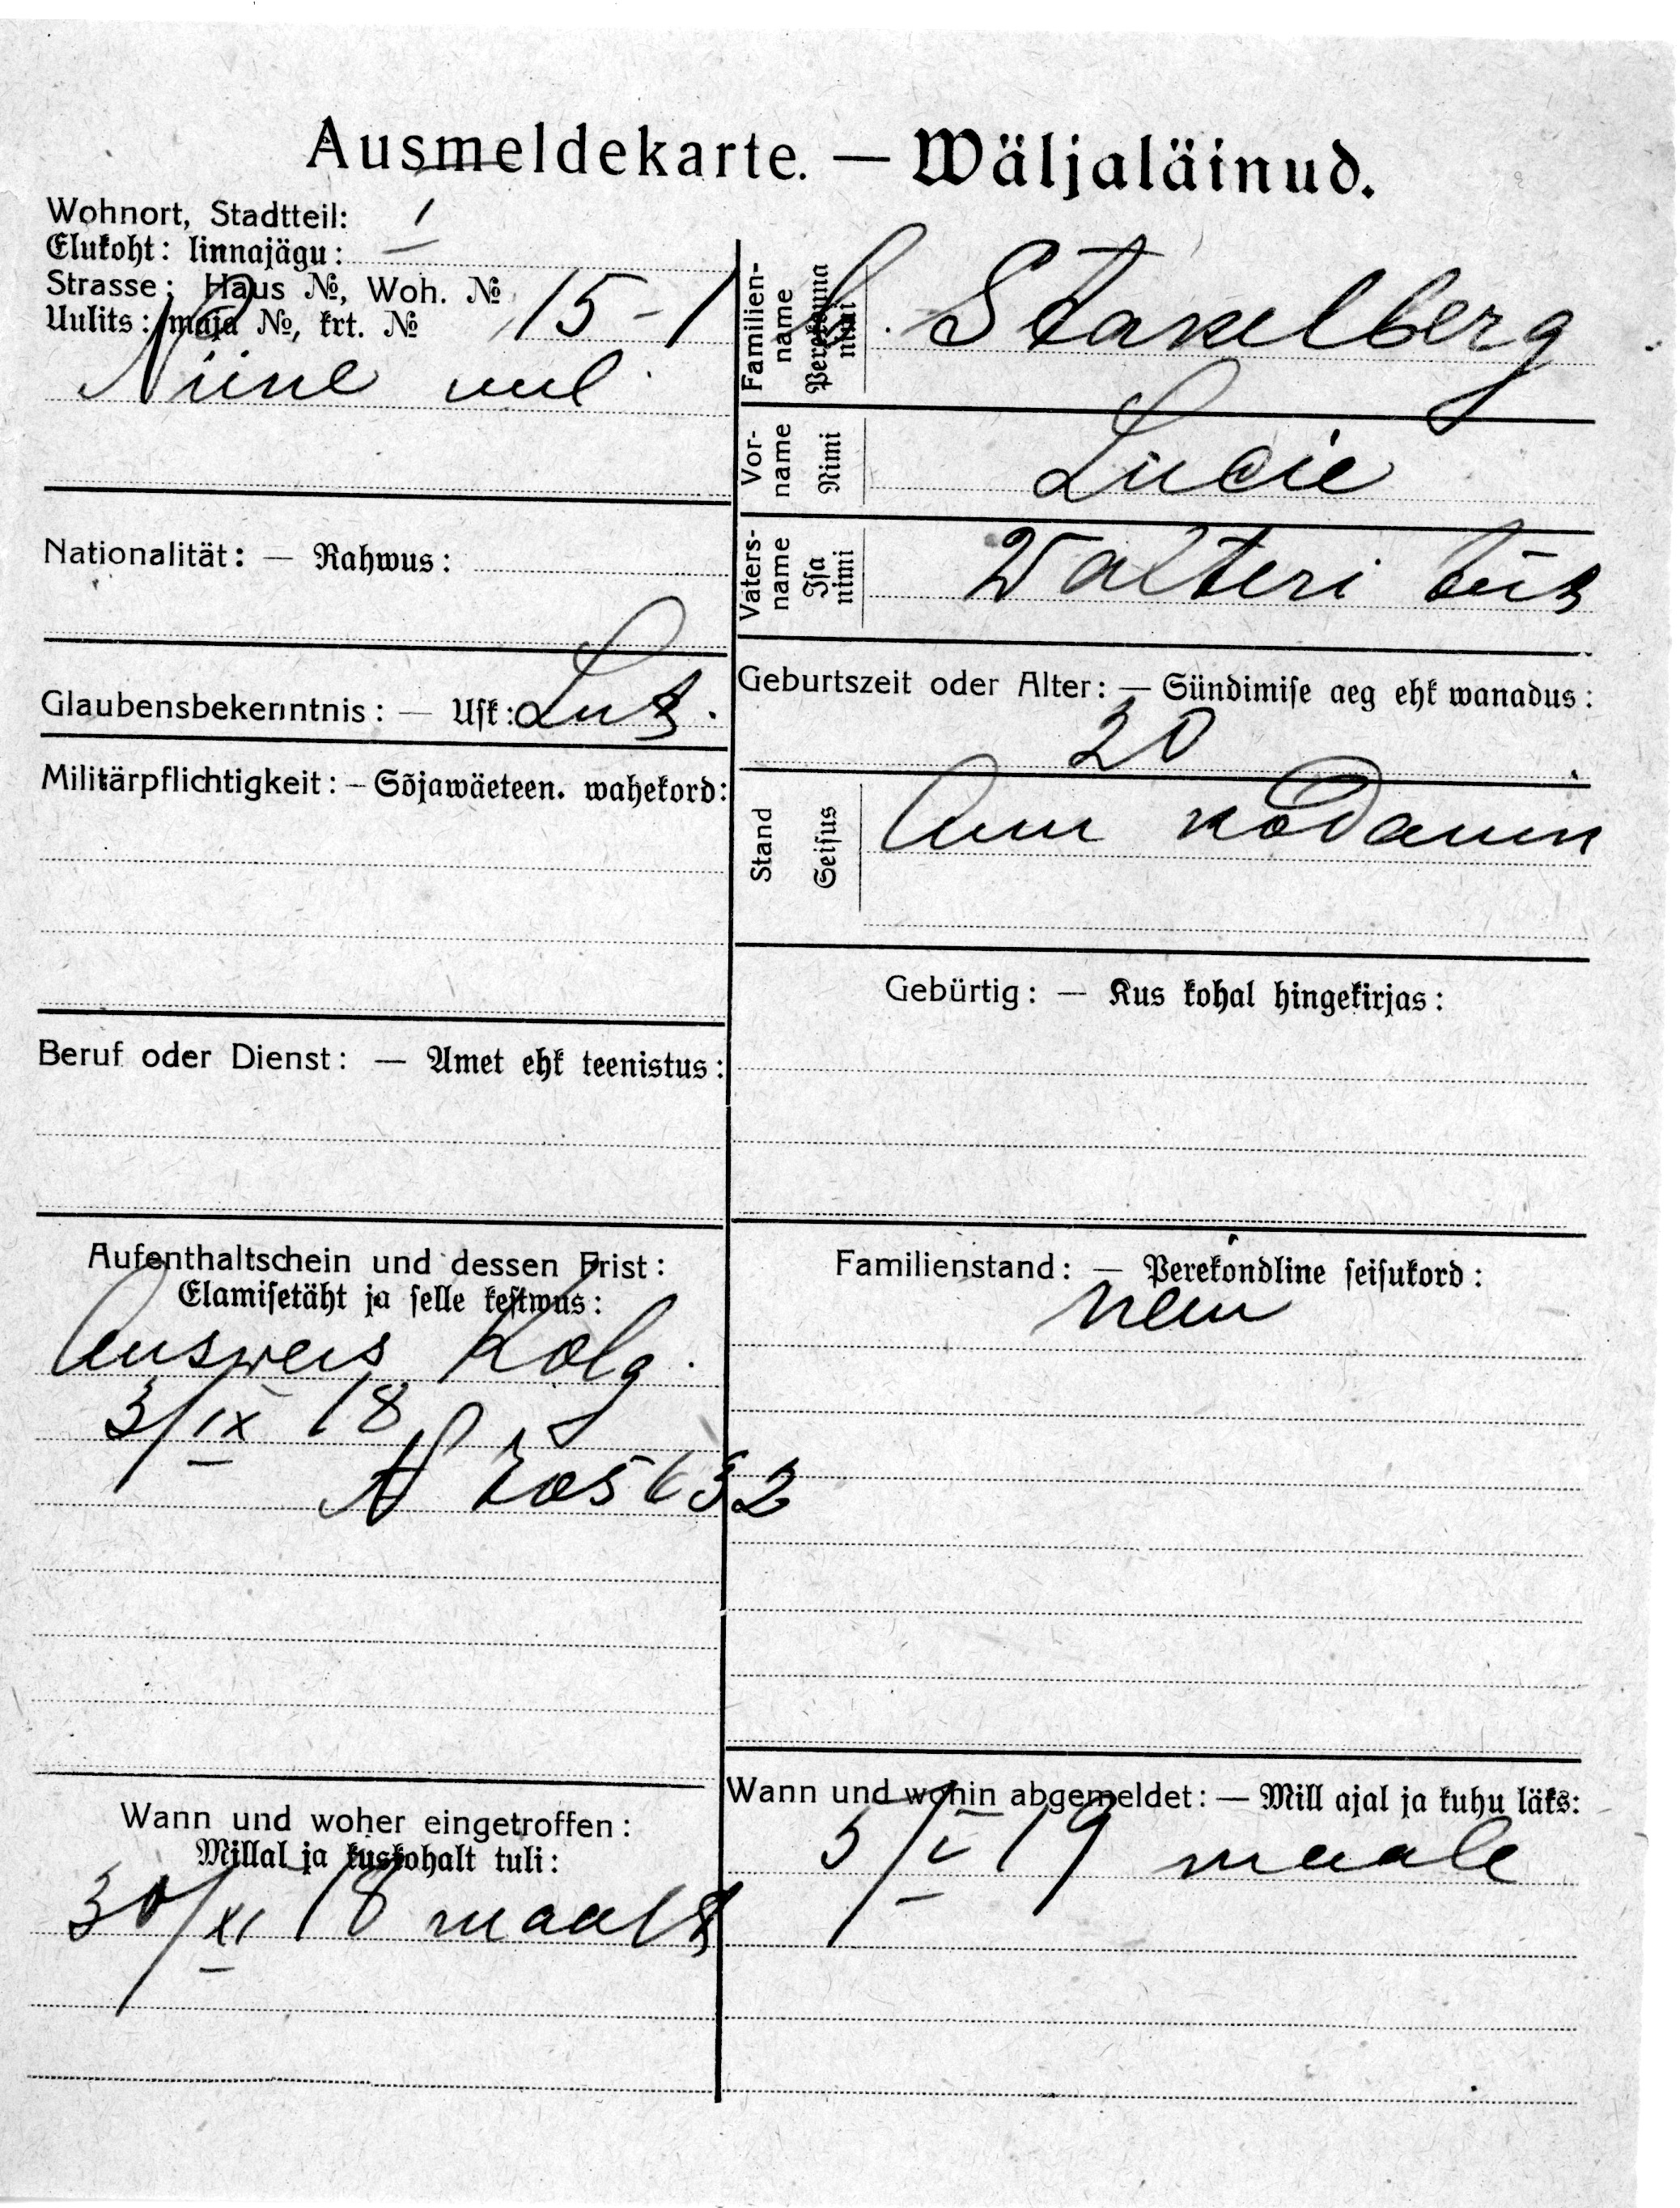 Ausmeldekarte. — Wäljaläinud.
Wohnort, Stadtteil: I
Elukoht: linnajägu:
Strasse: Haus №, Woh. № 15-1
Uulits: maja №, krt. №
Niine uul.
Nationalität: — Rahwus:
Glaubensbekenntnis: — Usk: Lut.
Militärpflichtigkeit: — Sõjawäeteen. wahekord:
Beruf oder Dienst: — Amet ehk teenistus:
Aufenthaltschein und dessen Frist:
Elamisetäht ja selle kestwus:
Ausweis Kolg.
3/IX 18
Wann und woher eingetroffen:
Millal ja kuskohalt tuli:
30/XI 18 maalt
Familien-name Perekonna nimi Stakelberg
Vor-name Nimi Lucie
Vaters-name Isa nimi Walteri tüt
Geburtszeit oder Alter: — Sündimise aeg ehk wanadus:
20
Stand Seisus
Gebürtig: — Kus kohal hingekirjas:
Familienstand: — Perekondline seisukord:
Wann und wohin abgemeldet: — Mill ajal ja kuhu läks:
5/I 19 maale